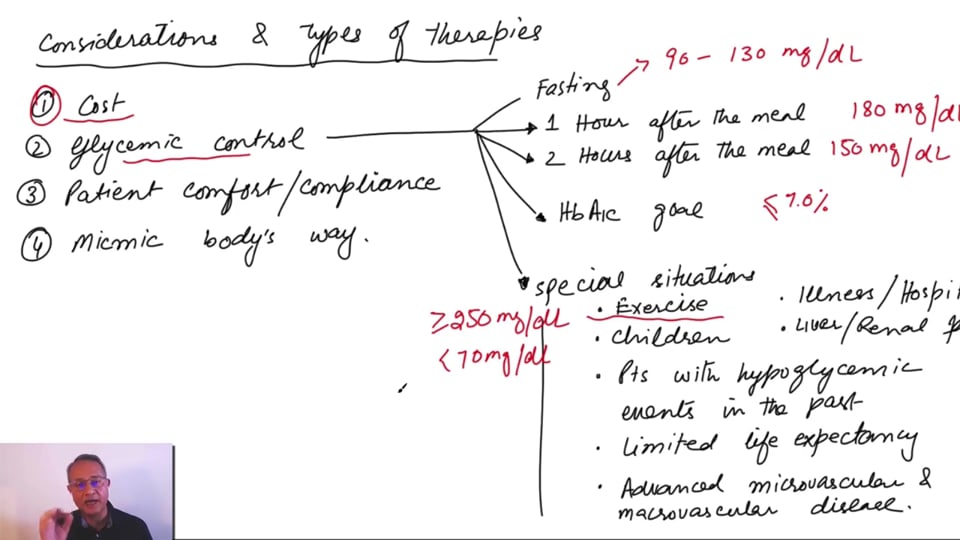 Considerations & Types of Therapies
① Cost
② Glycemic control
③ Patient comfort/compliance
④ Micmic body's way.
Fasting → 90 - 130 mg/dL
1 Hour after the meal 180 mg/dL
2 Hours after the meal 150 mg/dL
HbA1c goal ≤ 7.0%
special situations
≥250 mg/dL
<70 mg/dL
• Exercise
• children
• Pts with hypoglycemic
events in the past
• Limited life expectancy
• Advanced microvascular &
macrovascular disease.
• Illness/Hospi
• Liver/Renal